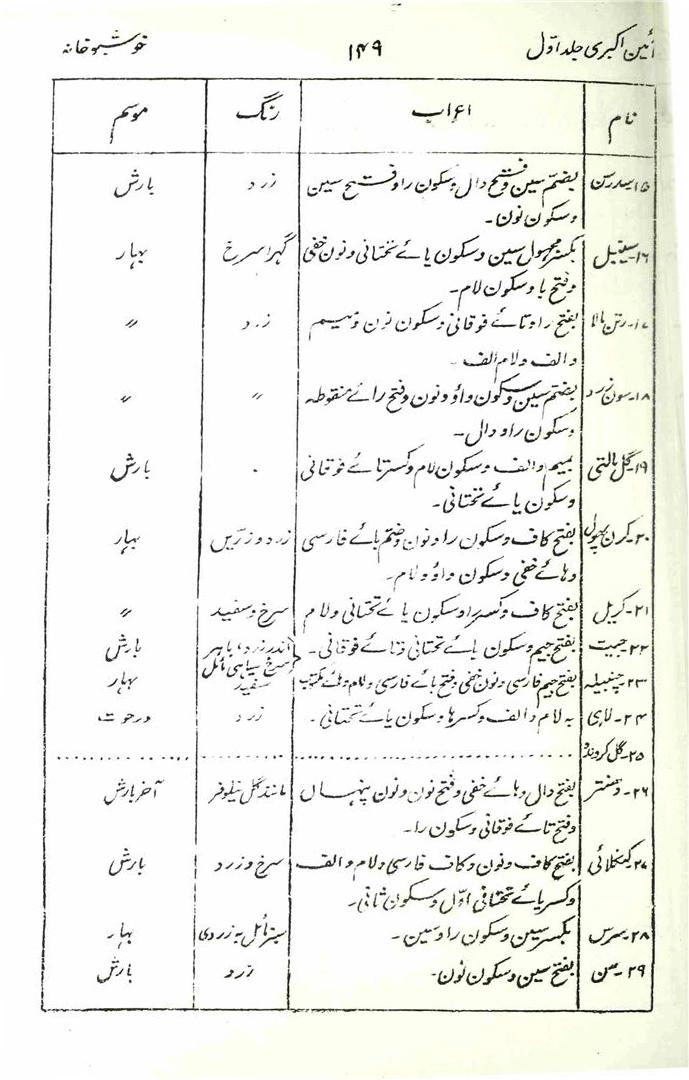 آئین اکبری جلد اوّل ۱۴۹ خوشبو خانہ
نام اعراب رنگ موسم
۱۵۔سدرسن بضمّ سین و فتح دال و سکون را و فتح سین زرد بارش
و سکون نون۔
۱۶۔سینبل بکسر مجہول سین و سکون یائے تحتانی و نون خفی گہرا سرخ بہار
و فتح با و سکون لام۔
۱۷۔رتن مالا بفتح را و تائے فوقانی و سکون نون و میم زرد 〃
و الف و لام الف۔
۱۸۔سون زرد بضم سین و سکون واؤ و نون و فتح زائے منقوطہ 〃 〃
و سکون را و دال۔
۱۹۔گل مالتی بمیم و الف و سکون لام و کسر تائے فوقانی . بارش
و سکون یائے تحتانی۔
۲۰۔کرن پھول بفتح کاف و سکون را و نون و ضم بائے فارسی زرد و زرّیں بہار
و ہائے خفی و سکون واؤ و لام۔
۲۱۔کریل بفتح کاف و کسر را و سکون یائے تحتانی و لام سرخ و سفید 〃
۲۲۔جیت بفتح جیم و سکون یائے تحتانی و تائے فوقانی۔ اندر زرد، باہر سرخ سیاہی مائل بارش
۲۳۔چنپیلہ بفتح جیم فارسی و نون خفی و فتح بائے فارسی و لام و ہائے مکتوب سفید بہار
۲۴۔لاہی بہ لام و الف و کسر ہا و سکون یائے تحتانی۔ زرد در حوت
۲۵۔گل کروندہ ........................
۲۶۔دھنتر بفتح دال و ہائے خفی و فتح نون و نون پنہاں مانند گل نیلوفر آخر بارش
و فتح تائے فوقانی و سکون را۔
۲۷۔کنگلائی بفتح کاف و نون و کاف فارسی و لام و الف سرخ و زرد بارش
و کسر یائے تحتانی اوّل و سکون ثانی۔
۲۸۔سرس بکسر سین و سکون را و سین۔ سبز مائل بہ زردی بہار
۲۹۔سن بفتح سین و سکون نون۔ زرد بارش